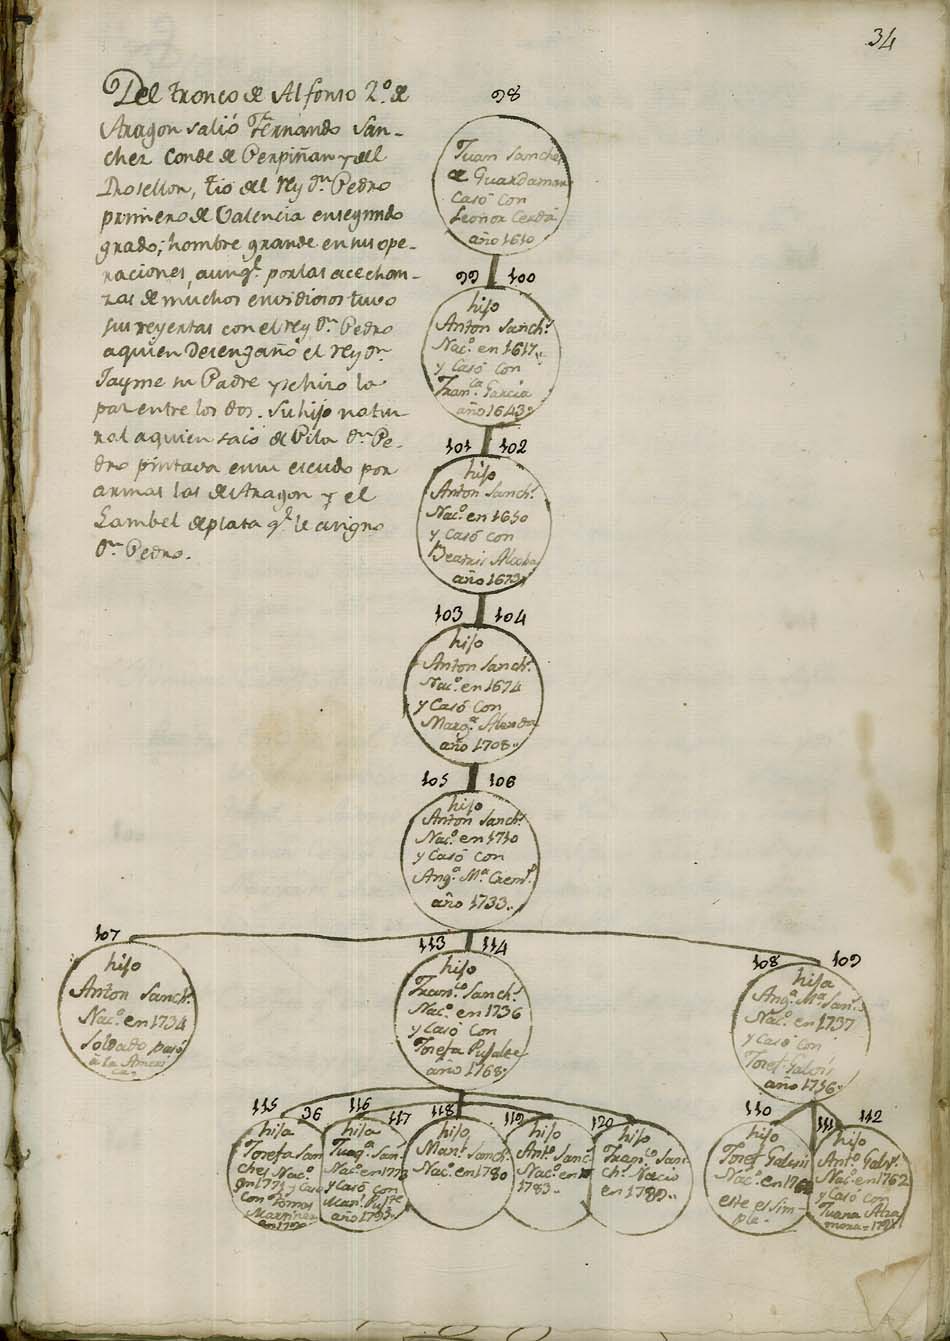 34
Del tronco de Alfonso 2.º de
Aragon salió Fernando San-
chez Conde de Perpiñan y del
Rosellon, tio del rey Dn Pedro
primero de Valencia en segundo
grado; hombre grande en sus ope-
raciones, aunq.e por las acechan-
zas de muchos envidiosos tuvo
sus reyertas con el rey Dn Pedro
a quien desengañó el rey Dn
Jayme su Padre y se hizo la
paz entre los dos. Su hijo natu-
ral a quien sacó de Pila Dn Pe-
dro pintava en su escudo por
armas las de Aragon y el
Lambel de plata q.e le asigno
Dn Pedro.
98
Juan Sanchez
de Guardamar
Casó con
Leonor Cerdá
año 1610
99 100
hijo
Anton Sanch.z
Nac.º en 1617..
y Casó con
Fran.ca Garcia
año 1643.
101 102
hijo
Anton Sanch.z
Nac.º en 1650
y Casó con
Beatris
año 1673.
103 104
hijo
Anton Sanch.z
Nac.º en 1674
y Casó con
Marg.a
año 1708..
105 106
hijo
Anton Sanch.z
Nac.º en 1710
y Casó con
Ang.a M.a
año 1733..
107
hijo
Anton Sanch.z
Nac.º en 1734
soldado pasó
a la Ameri
ca.
113 114
hijo
Fran.co Sanch.z
Nac.º en 1736
y Casó con
Josefa Pujalte
año 1768.
108 109
hija
Ang.a M.a San.z
Nac.º en 1737
y Casó con
Josef Galvis
año 1756.
115 36
hija
Josefa San
chez Nac.º
en 1771 y Casó
con Tomas
Martinez
en
116
hija
Juaq.a San.
Nac.º en 1773
y Casó con
Man.l
año 1793.
117 118
hijo
Man.l Sanch.z
Nac.º en 1780
119
hijo
Ant.º Sanc.
Nac.º en
1783..
120
hijo
Fran.co San
ch.z Nacio
en 1789..
110
hijo
Josef Galvis
Nac.º en
este es sim-
ple.
111 112
hijo
Ant.º Galv.s
Nac.º en 1762
y Casó con
Juana